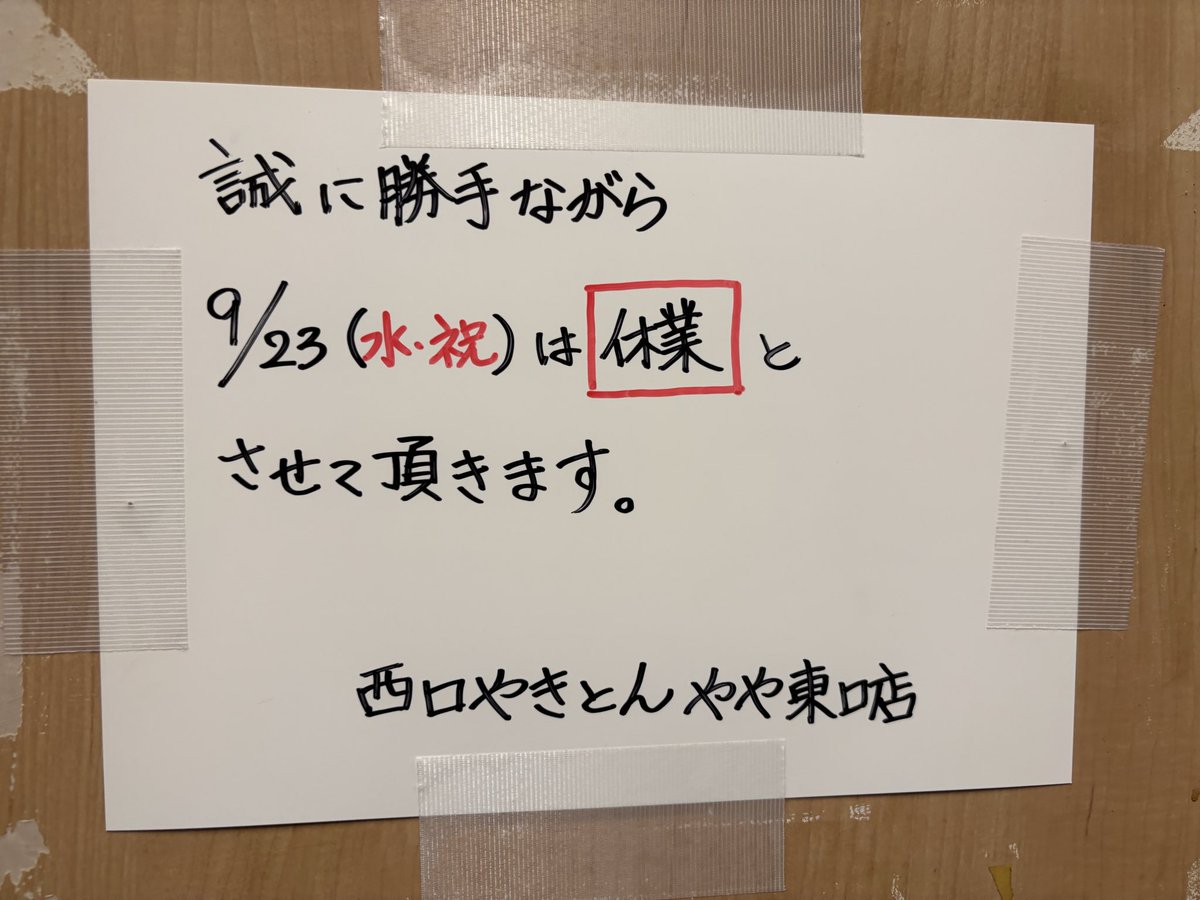 誠に勝手ながら
9/23(水・祝)は休業と
させて頂きます。
西口やきとん やや東口店